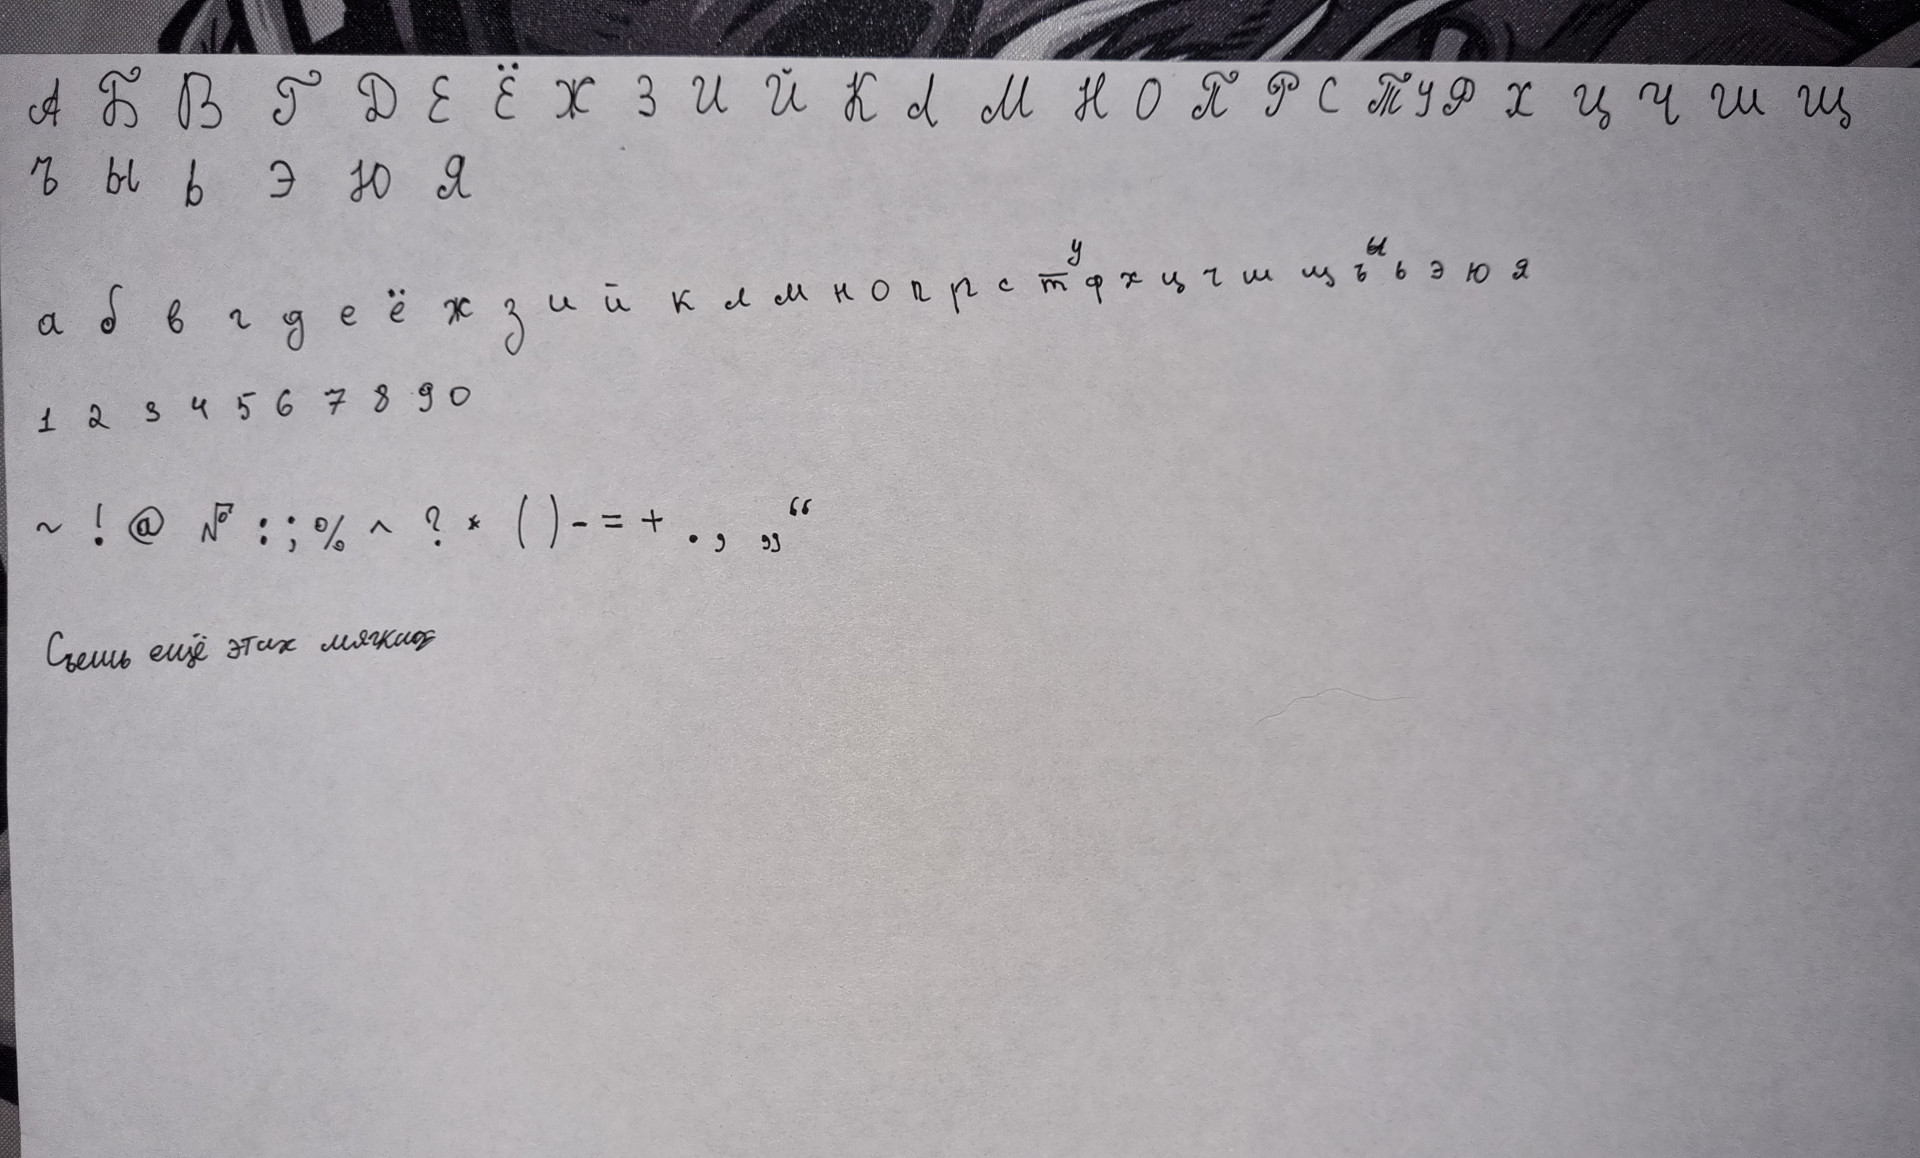 А Б В Г Д Е Ё Ж З И Й К Л М Н О П Р С Т У Ф Х Ц Ч Ш Щ
Ъ Ы Ь Э Ю Я
а б в г д е ё ж з и й к л м н о п р с т у ф х ц ч ш щ ъ ы ь э ю я
1 2 3 4 5 6 7 8 9 0
~ ! @ № : ; % ^ ? * ( ) - = + . , „“
Съешь ещё этих мягких